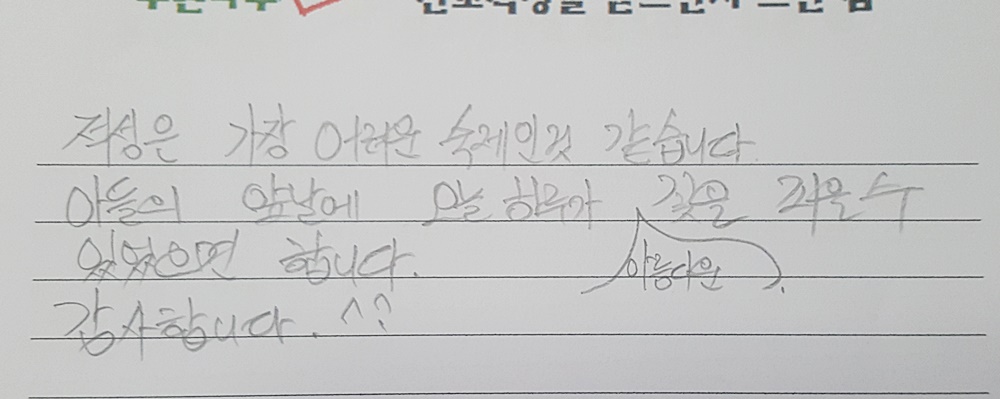 적성은 가장 어려운 숙제인것 같습니다.
아들의 앞날에 오늘 하루가 꽃을 피울 수
아름다운
있었으면 합니다.
감사합니다. ^^